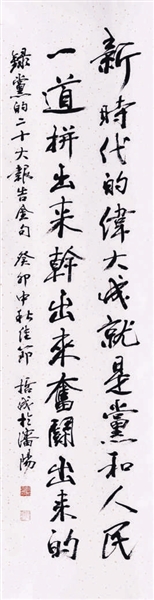 新時代的偉大成就是黨和人民
一道拼出來幹出來奮鬪出來的
録黨的二十大報告金句 癸卯中秋佳節 於瀋陽